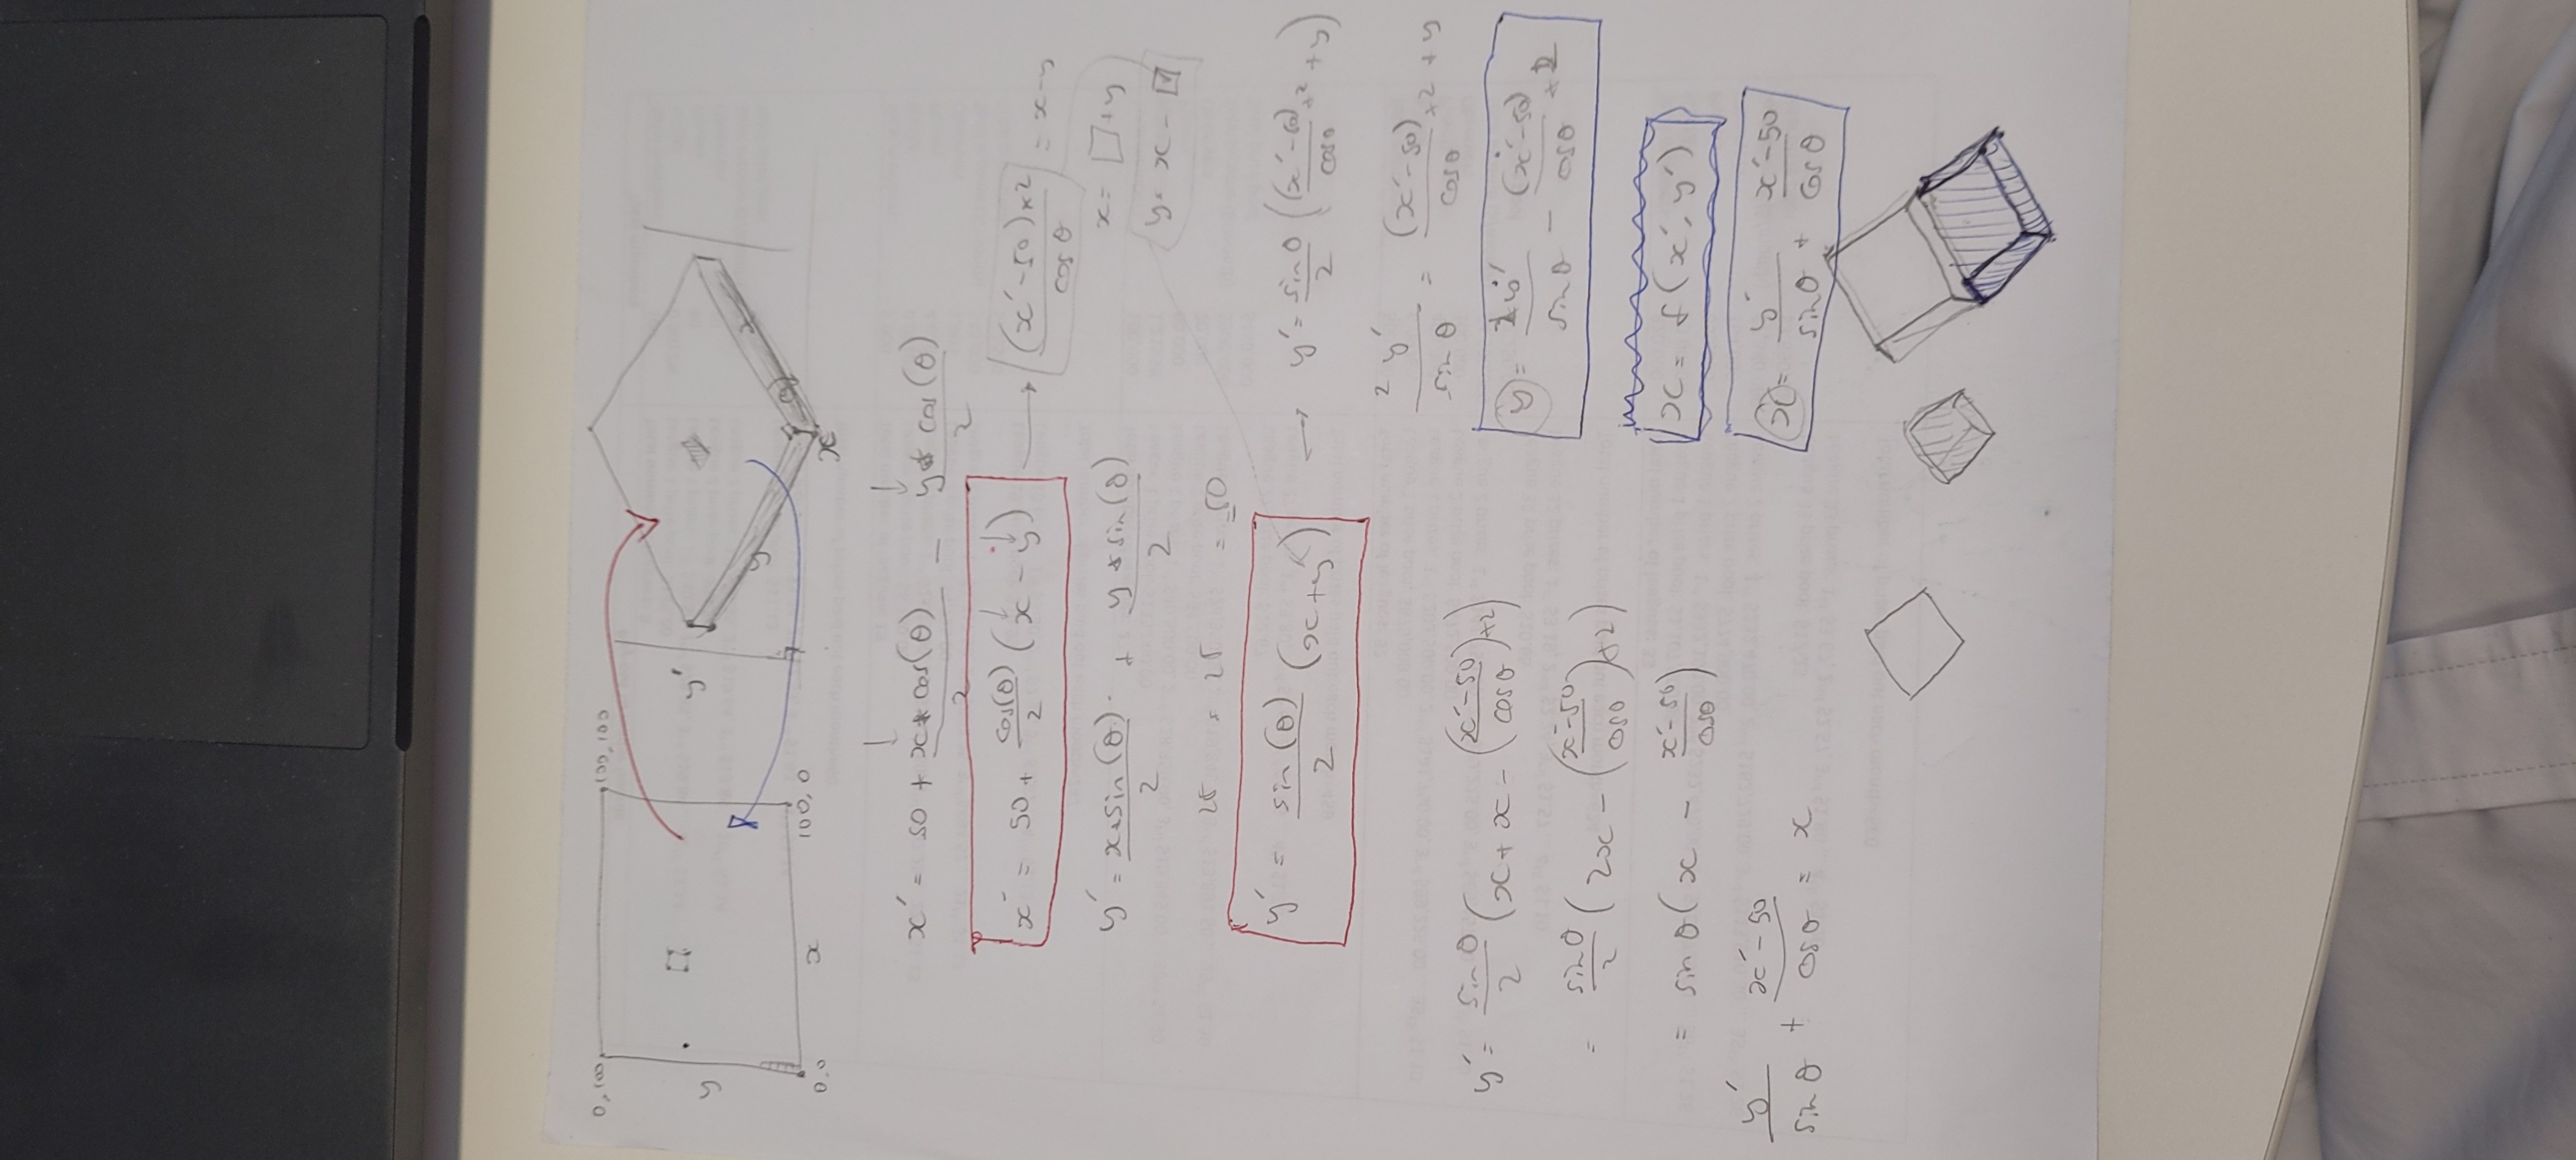 0,100
100,100
y
y'
y
x
θ
0,0
x
100,0
x'
x' = 50 + x * cos(θ) / 2 - y * cos(θ) / 2
x' = 50 + cos(θ)/2 (x - y) → (x'-50)×2 / cos θ = x-y
x = □ + y
y = x - □
y' = x * sin(θ) / 2 + y * sin(θ) / 2
25 + 25 = 50
y' = sin(θ)/2 (x+y) → y' = sin θ/2 ((x'-50)/cos θ *2 + y)
2y'/sin θ = (x'-50)/cos θ *2 + y
y' = sin θ/2 (x + x - ((x'-50)/cos θ)*2)
y = 2y'/sin θ - (x'-50)/cos θ *2
= sin θ/2 (2x - ((x'-50)/cos θ)*2)
x = f(x', y')
= sin θ (x - (x'-50)/cos θ)
x = y'/sin θ + x'-50/cos θ
y'/sin θ + x'-50/cos θ = x